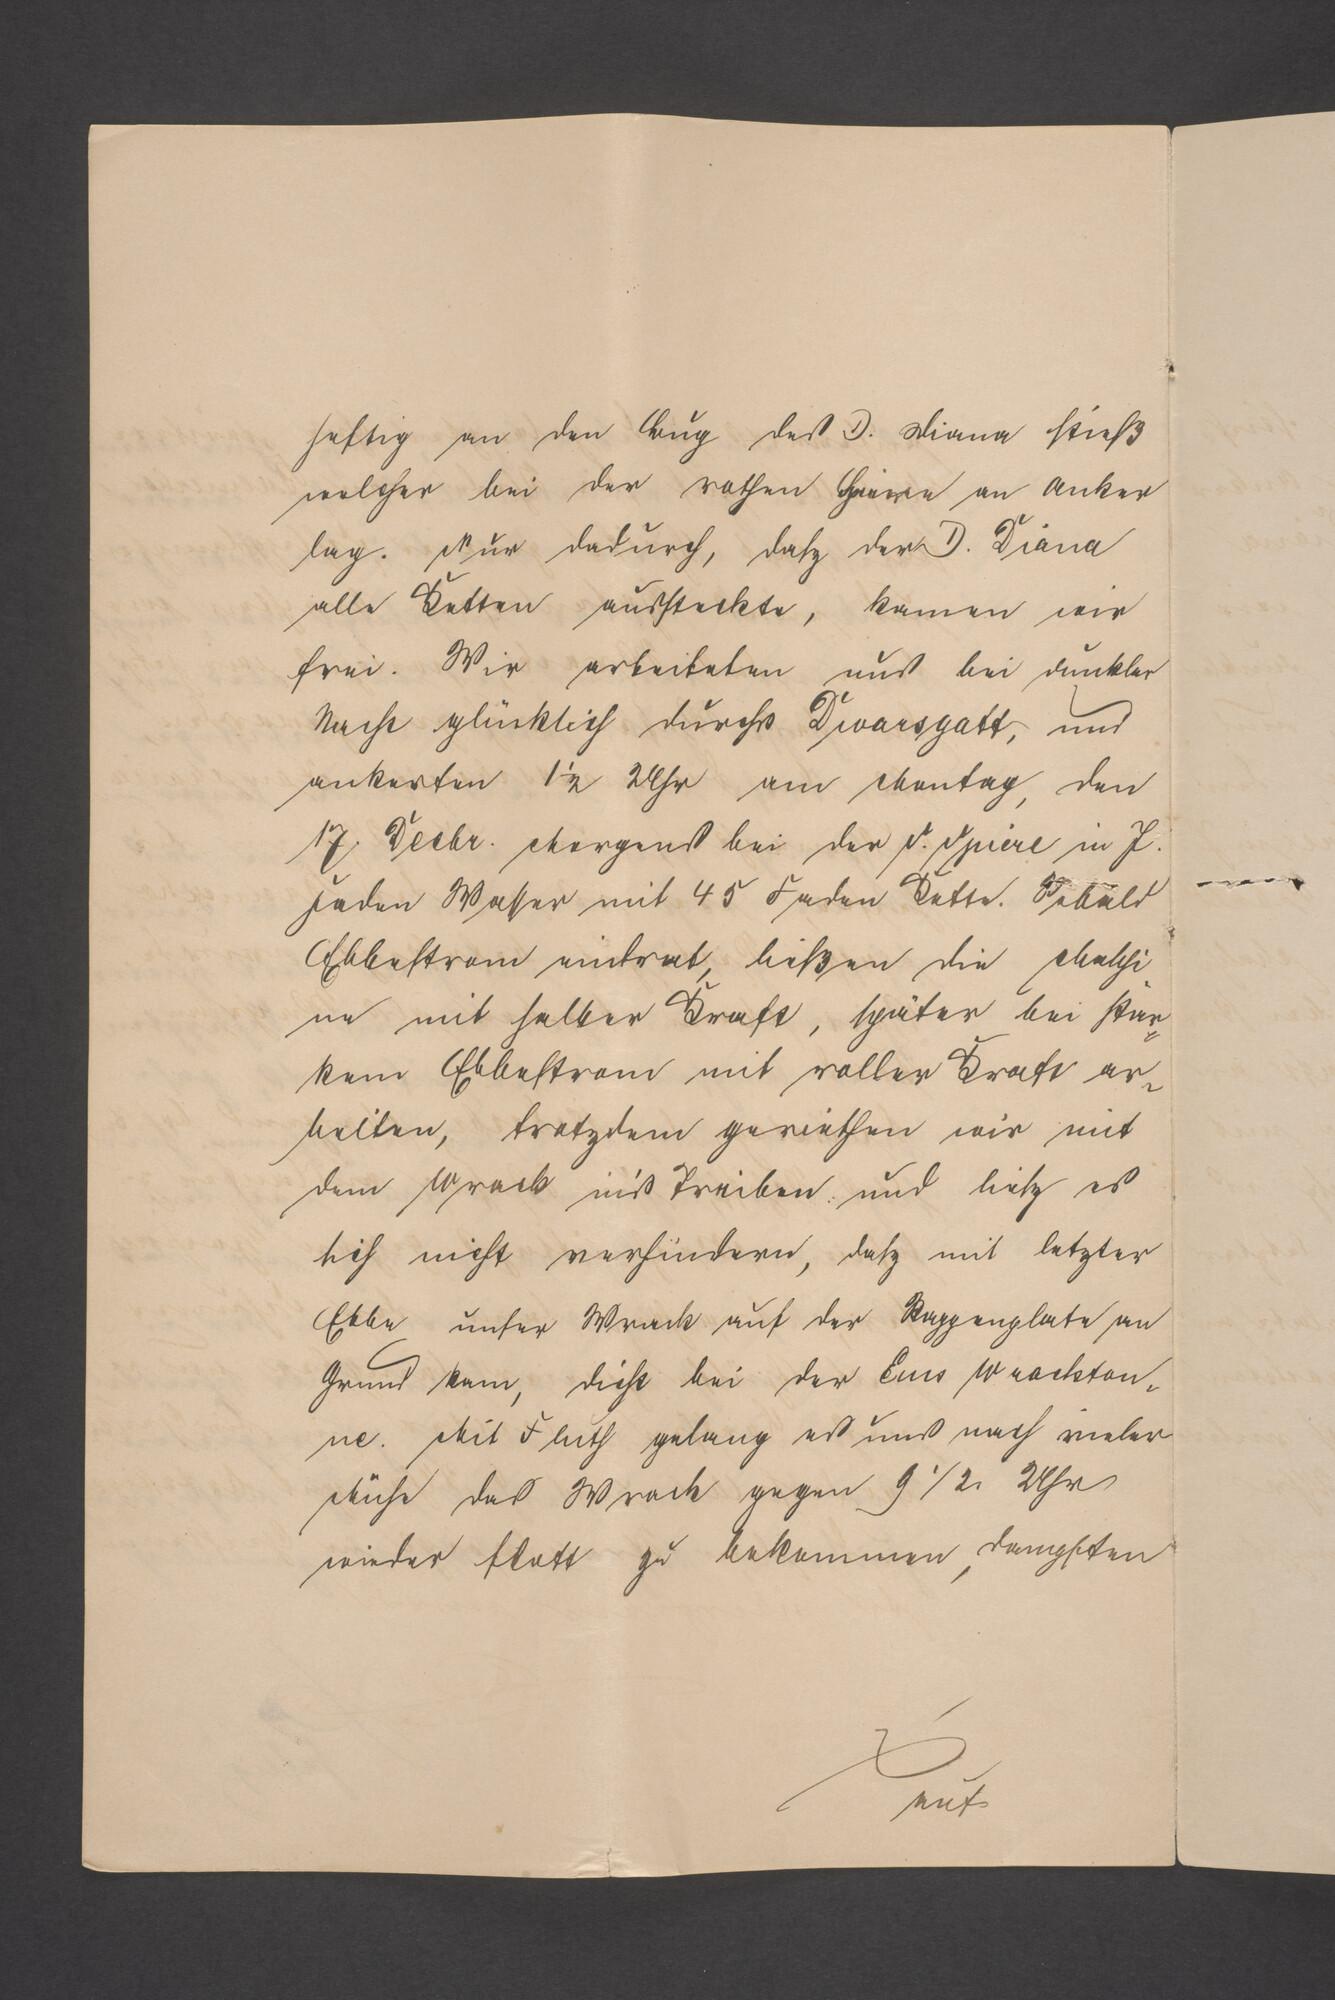 heftig an den Bug des D. Diana stieß
welcher bei der rothen an Anker
lag. Nur dadurch, daß der D. Diana
alle Ketten aussteckte, kamen wir
frei. Wir arbeiteten uns bei dunkler
Nacht glücklich durchs Dwarsgatt, und
ankerten 1½ Uhr am Montag, den
17. Decbr. Morgens bei der S. Spiere in 7.
Faden Wasser mit 45 Faden Kette. Sobald
Ebbestrom eintrat, ließen die Maschi
ne mit halber Kraft, später bei star=
kem Ebbestrom mit voller Kraft ar=
beiten, trotzdem geriethen wir mit
dem Wrack in's Treiben und ließ es
sich nicht verhindern, daß mit letzter
Ebbe unser Wrack auf der Robbenplate an
Grund kam, dicht bei der Ems Wrackton=
ne. Mit Fluth gelang es uns nach vieler
Mühe das Wrack gegen 9 1/2 Uhr
wieder flott zu bekommen, dampften
auf